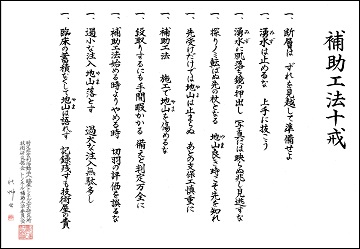 補助工法十戒
一、断層は ずれを見越して準備せよ
一、湧水は止めるな 上手に抜こう
一、湧水に肌落ち鏡の押出し 写真では映らぬ兆を見逃すな
一、探りノミ転ばぬ先の杖となる 地山良き時こそ先を知れ
一、先受けだけでは地山は止まらぬ あとの支保工慎重に
一、補助工法 施工で地山を傷めるな
一、段取りするにも手間暇かかる 備えと判定万全に
一、補助工法始める時よりやめる時 切羽の評価を誤るな
一、過小な注入地山落とす 過大な注入無駄となる
一、臨床の蓄積なくして地山は語れず 記録残すも技術屋の責